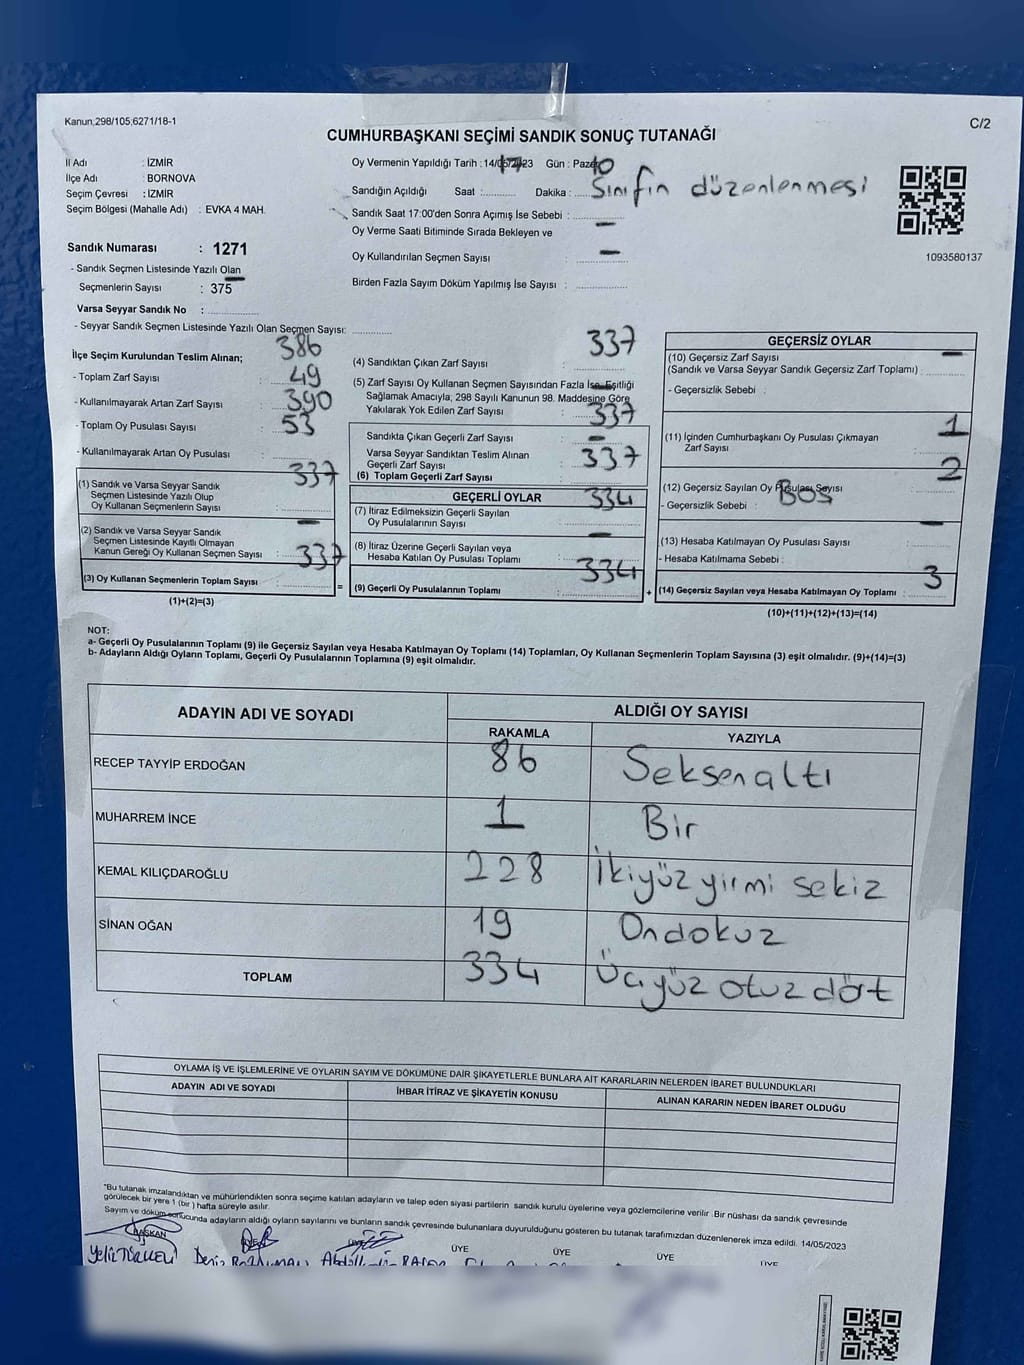 Kanun,298/105,6271/18-1
C/2
CUMHURBAŞKANI SEÇİMİ SANDIK SONUÇ TUTANAĞI
İl Adı : İZMİR
İlçe Adı : BORNOVA
Seçim Çevresi : İZMİR
Seçim Bölgesi (Mahalle Adı) : EVKA 4 MAH.
Sandık Numarası : 1271
- Sandık Seçmen Listesinde Yazılı Olan
Seçmenlerin Sayısı : 375
Varsa Seyyar Sandık No :
- Seyyar Sandık Seçmen Listesinde Yazılı Olan Seçmen Sayısı:
Oy Vermenin Yapıldığı Tarih : 14/05/2023 Gün : Pazar
17 10
Sandığın Açıldığı Saat : Dakika :
Sınıfın düzenlenmesi
Sandık Saat 17:00'den Sonra Açımış İse Sebebi :
Oy Verme Saati Bitiminde Sırada Bekleyen ve
Oy Kullandırılan Seçmen Sayısı : –
Birden Fazla Sayım Döküm Yapılmış İse Sayısı : –
1093580137
İlçe Seçim Kurulundan Teslim Alınan;
- Toplam Zarf Sayısı : 386
- Kullanılmayarak Artan Zarf Sayısı : 49
- Toplam Oy Pusulası Sayısı : 390
- Kullanılmayarak Artan Oy Pusulası : 53
(1) Sandık ve Varsa Seyyar Sandık
Seçmen Listesinde Yazılı Olup
Oy Kullanan Seçmenlerin Sayısı : 337
(2) Sandık ve Varsa Seyyar Sandık
Seçmen Listesinde Kayıtlı Olmayan
Kanun Gereği Oy Kullanan Seçmen Sayısı : –
(3) Oy Kullanan Seçmenlerin Toplam Sayısı : 337
(1)+(2)=(3)
=
(4) Sandıktan Çıkan Zarf Sayısı : 337
(5) Zarf Sayısı Oy Kullanan Seçmen Sayısından Fazla İse, Eşitliği
Sağlamak Amacıyla, 298 Sayılı Kanunun 98. Maddesine Göre
Yakılarak Yok Edilen Zarf Sayısı : –
Sandıkta Çıkan Geçerli Zarf Sayısı : 337
Varsa Seyyar Sandıktan Teslim Alınan
Geçerli Zarf Sayısı : –
(6) Toplam Geçerli Zarf Sayısı : 337
GEÇERLİ OYLAR
(7) İtiraz Edilmeksizin Geçerli Sayılan
Oy Pusulalarının Sayısı : 334
(8) İtiraz Üzerine Geçerli Sayılan veya
Hesaba Katılan Oy Pusulası Toplamı : –
(9) Geçerli Oy Pusulalarının Toplamı : 334
+
GEÇERSİZ OYLAR
(10) Geçersiz Zarf Sayısı
(Sandık ve Varsa Seyyar Sandık Geçersiz Zarf Toplamı) : –
- Geçersizlik Sebebi :
(11) İçinden Cumhurbaşkanı Oy Pusulası Çıkmayan
Zarf Sayısı : 1
(12) Geçersiz Sayılan Oy Pusulası Sayısı : 2
- Geçersizlik Sebebi : BOŞ
(13) Hesaba Katılmayan Oy Pusulası Sayısı : –
- Hesaba Katılmama Sebebi :
(14) Geçersiz Sayılan veya Hesaba Katılmayan Oy Toplamı : 3
(10)+(11)+(12)+(13)=(14)
NOT:
a- Geçerli Oy Pusulalarının Toplamı (9) ile Geçersiz Sayılan veya Hesaba Katılmayan Oy Toplamı (14) Toplamları, Oy Kullanan Seçmenlerin Toplam Sayısına (3) eşit olmalıdır. (9)+(14)=(3)
b- Adayların Aldığı Oyların Toplamı, Geçerli Oy Pusulalarının Toplamına (9) eşit olmalıdır.
ADAYIN ADI VE SOYADI
ALDIĞI OY SAYISI
RAKAMLA YAZIYLA
RECEP TAYYİP ERDOĞAN 86 Seksenaltı
MUHARREM İNCE 1 Bir
KEMAL KILIÇDAROĞLU 228 İkiyüz yirmi sekiz
SİNAN OĞAN 19 Ondokuz
TOPLAM 334 Üçyüz otuz dört
OYLAMA İŞ VE İŞLEMLERİNE VE OYLARIN SAYIM VE DÖKÜMÜNE DAİR ŞİKAYETLERLE BUNLARA AİT KARARLARIN NELERDEN İBARET BULUNDUKLARI
ADAYIN ADI VE SOYADI İHBAR İTİRAZ VE ŞİKAYETİN KONUSU ALINAN KARARIN NEDEN İBARET OLDUĞU
*Bu tutanak imzalandıktan ve mühürlendikten sonra seçime katılan adayların ve talep eden siyasi partilerin sandık kurulu üyelerine veya gözlemcilerine verilir .Bir nüshası da sandık çevresinde
görülecek bir yere 1 (bir ) hafta süreyle asılır.
Sayım ve döküm sonucunda adayların aldığı oyların sayılarını ve bunların sandık çevresinde bulunanlara duyurulduğunu gösteren bu tutanak tarafımızdan düzenlenerek imza edildi. 14/05/2023
BAŞKAN ÜYE ÜYE ÜYE ÜYE ÜYE ÜYE